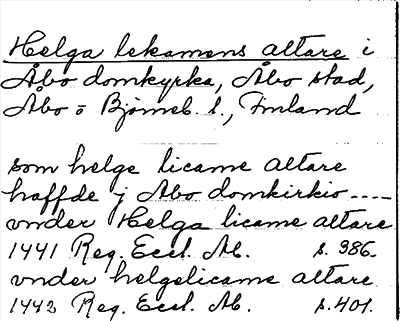 Helga lekamens altare i
Åbo domkyrka, Åbo stad,
Åbo o Björneb. l., Finland
som helge licame altare
haffde j Abo domkirkio ----
vnder Helga licame altare
1441 Reg. Eccl. Ab. s. 386.
vnder helgelicame altare
1443 Reg. Eccl. Ab. s. 401.